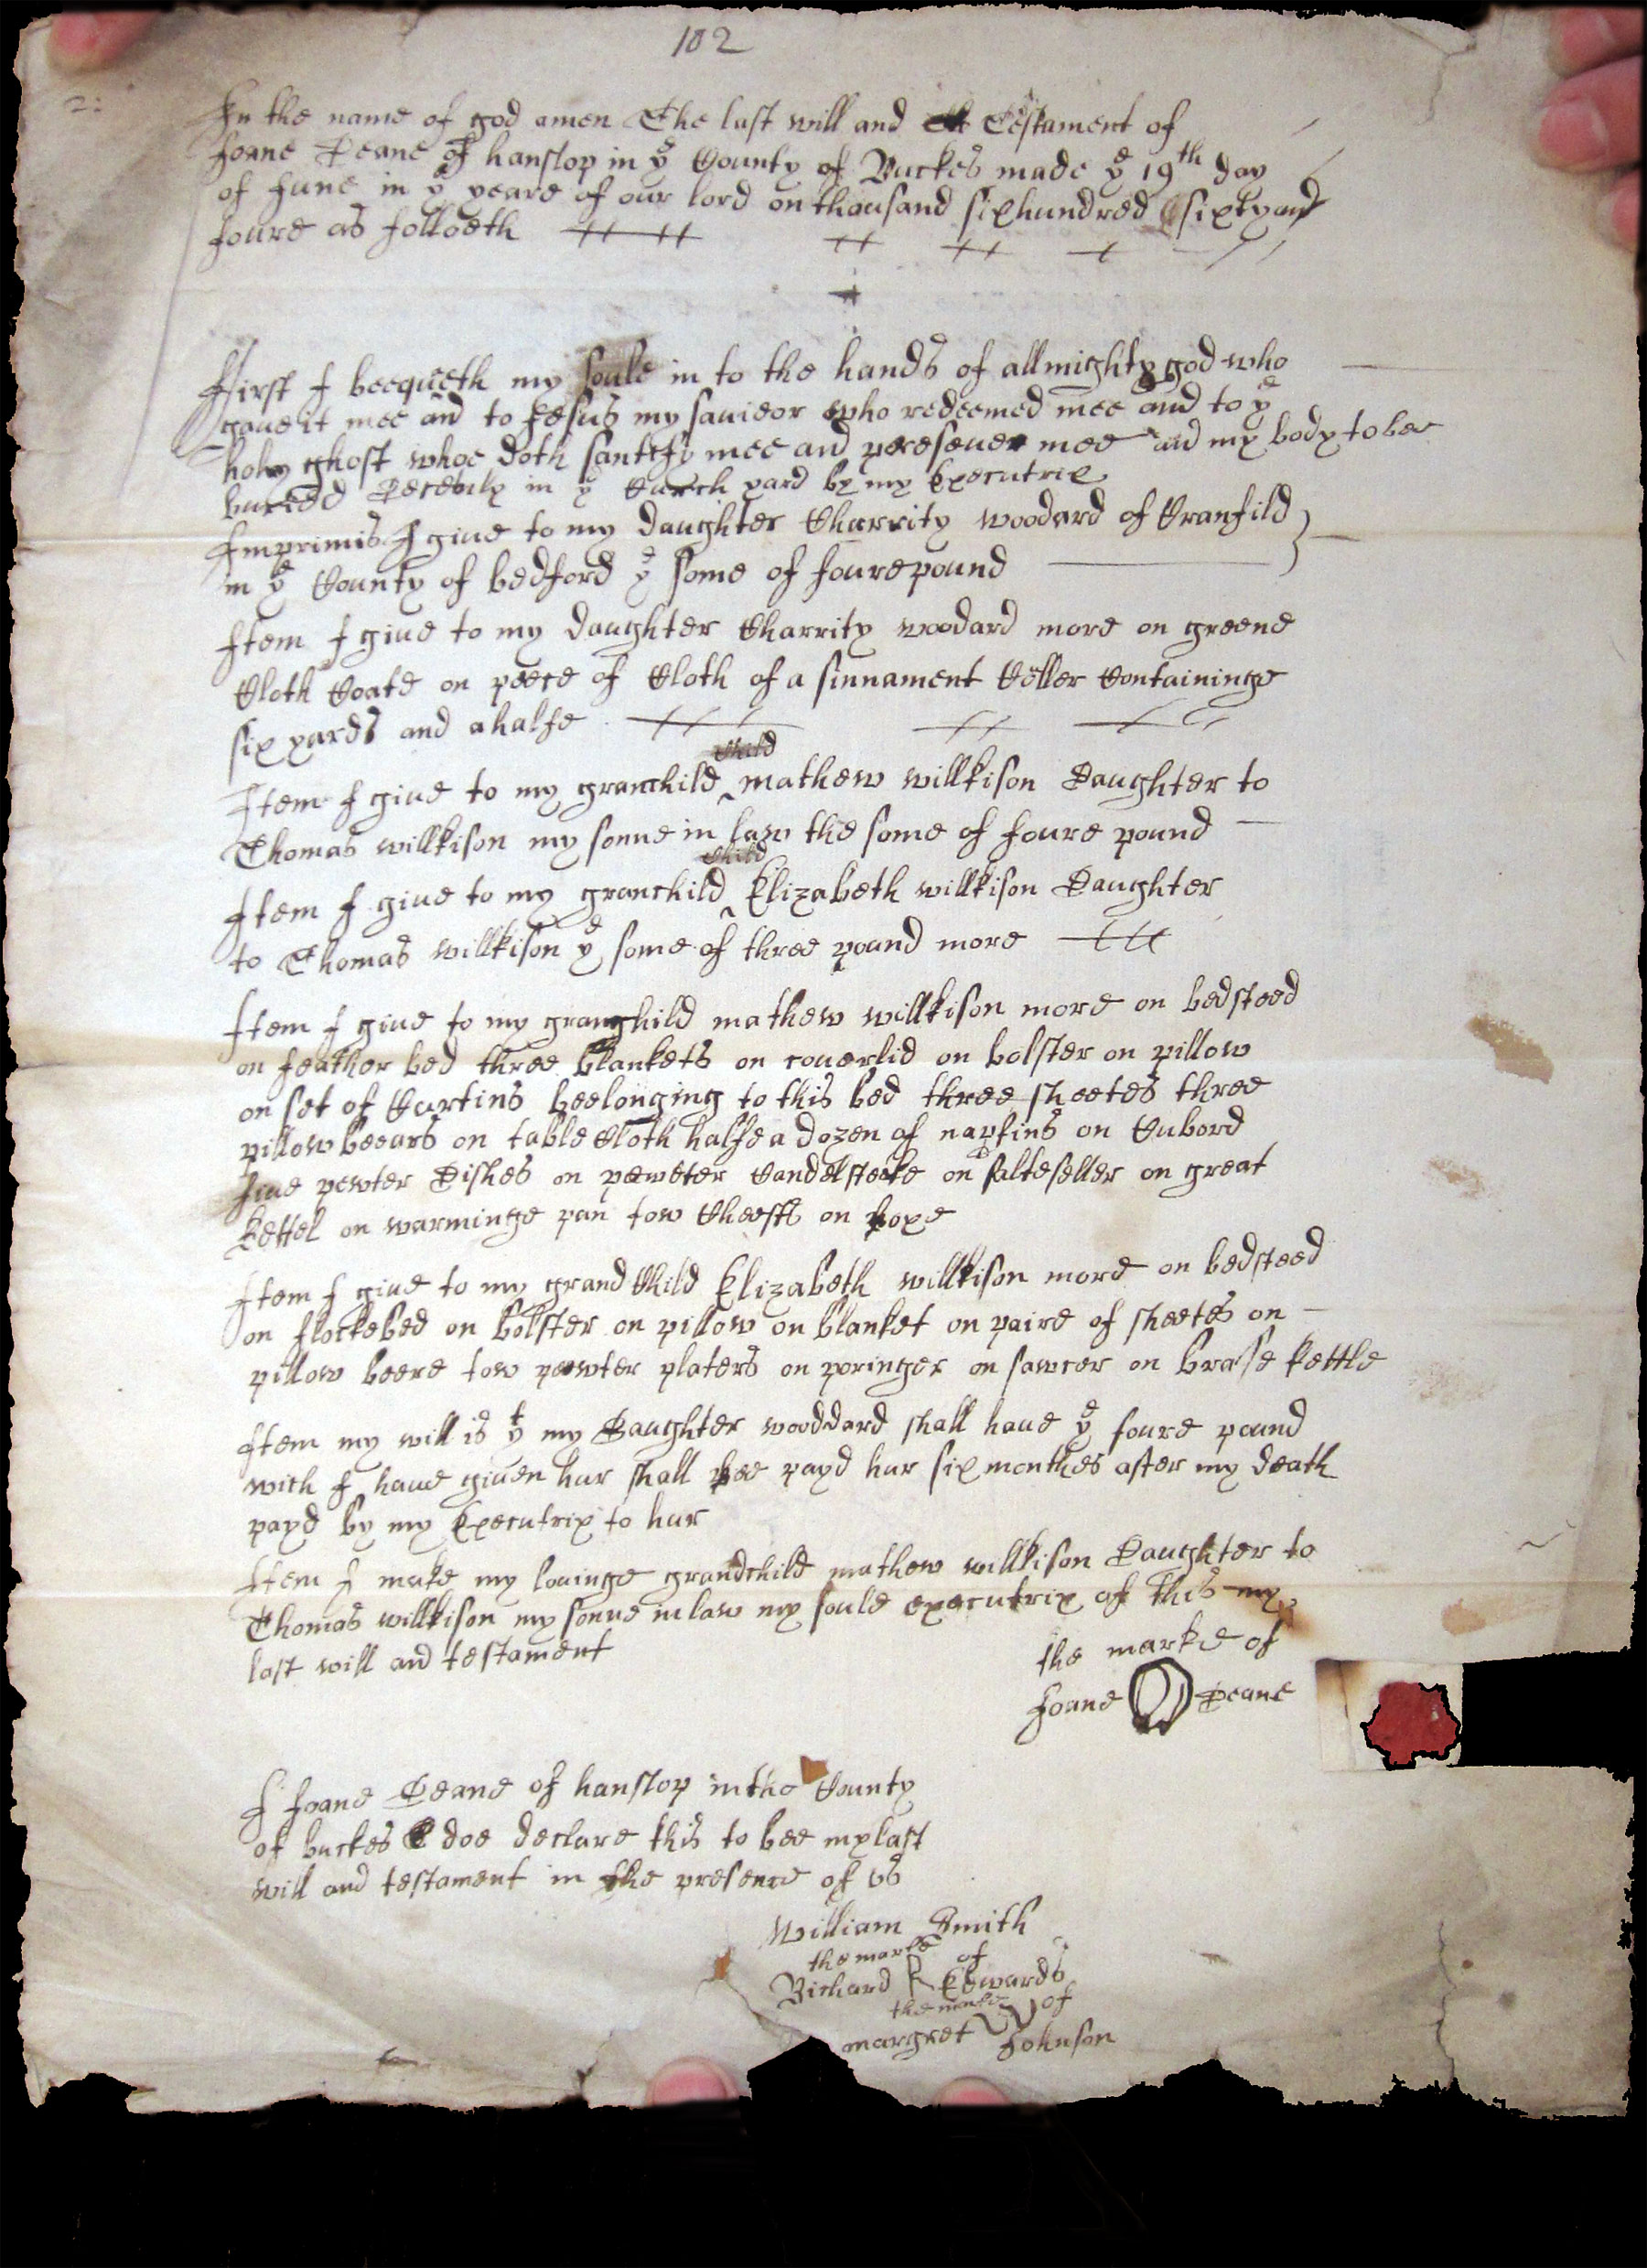 102
2:
In the name of god amen The last will and Testament of
Joane Deane of hanslop in ye County of Buckes made ye 19th day
of June in ye yeare of our lord on thousand sixhundred sixty and
foure as folloeth
First I beequeth my soule in to the hands of allmighty god who
gaue it mee and to Jesus my sauieor who redeemed mee and to ye
holy ghost whoe doth santefy mee and preseuer mee and my body to bee
buried Decently in ye Curch yard by my Executrix
Imprimis I giue to my daughter Charrity woodard of Cranfild
in ye County of bedford ye some of foure pound
Item I giue to my daughter Charrity woodard more on greene
Cloth Coate on peece of Cloth of a sinnament Coller Containinge
six yards and a halfe
Child
Item I giue to my granchild mathew willkison Daughter to
Thomas willkison my sonne in law the some of foure pound
Child
Item I giue to my granchild Elizabeth willkison Daughter
to Thomas willkison ye some of three pound more
Item I giue to my granghild mathew willkison more on bedsteed
on feather bed three blankets on couerlid on bolster on pillow
on set of Curtins beelonging to this bed three sheetes three
pillow beears on table Cloth halfe a dozen of napkins on Cubord
fiue pewter Dishes on pewter Candelsteke on salteseller on great
kettel on warminge pan tow Cheests on boxe
Item I giue to my grand Child Elizabeth willkison more on bedsteed
on flockebed on bolster on pillow on blanket on paire of sheetes on
pillow beere tow pewter platers on poringer on sawcer on brasse kettle
Item my will is yt my Daughter wooddard shall haue ye foure pound
wich I haue giuen hur shall bee payd hur six monthes after my death
payd by my Executrix to hur
Item I make my louinge grandchild mathew willkison Daughter to
Thomas willkison my sonne in law my soule executrix of this my
last will and testament
the marke of
Joane Deane
I Joane Deane of hanslop in the County
of buckes doe declare this to bee my last
will and testament in the presence of vs
William Smith
the marke of
Richard R Edwards
the marke of
margret Johnson